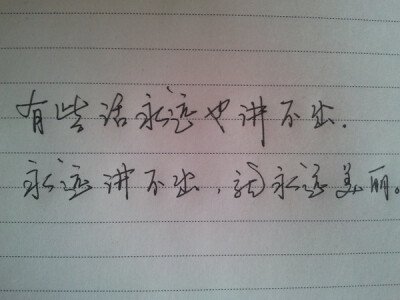 有些话永远也讲不出.
永远讲不出，就永远美丽。